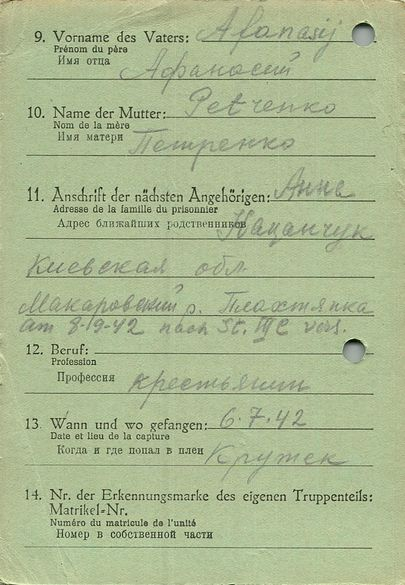 9. Vorname des Vaters: Afanasij
Prénom du père
Имя отца Афанасий
10. Name der Mutter: Petrenko
Nom de la mère
Имя матери Петренко
11. Anschrift der nächsten Angehörigen: Анна
Adresse de la famille du prisonnier
Адрес ближайших родственников
Киевская обл
Макаровский р. Плахтянка
am 8-19-42 nach St. vers.
12. Beruf:
Profession
Профессия крестьянин
13. Wann und wo gefangen: 6.7.42
Date et lieu de la capture
Когда и где попал в плен
14. Nr. der Erkennungsmarke des eigenen Truppenteils:
Matrikel-Nr.
Numéro du matricule de l'unité
Номер в собственной части